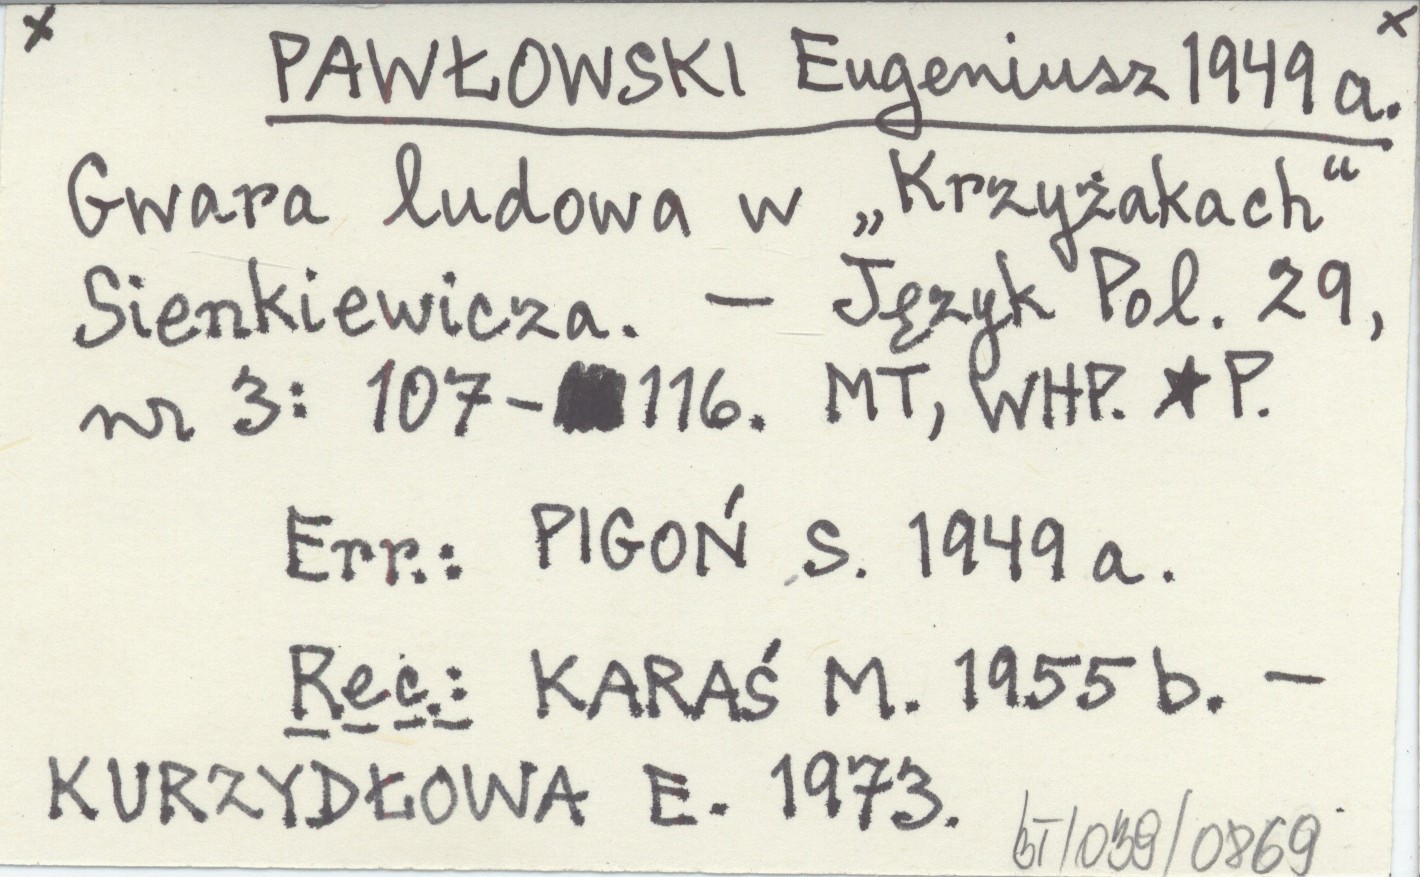 x x
PAWŁOWSKI Eugeniusz 1949 a.
Gwara ludowa w „Krzyżakach“
Sienkiewicza. — Język Pol. 29,
nr 3: 107-116. MT, WHP. ★ P.
Err.: PIGOŃ S. 1949 a.
Rec.: KARAŚ M. 1955 b. —
KURZYDŁOWA E. 1973.
BT/039/0869